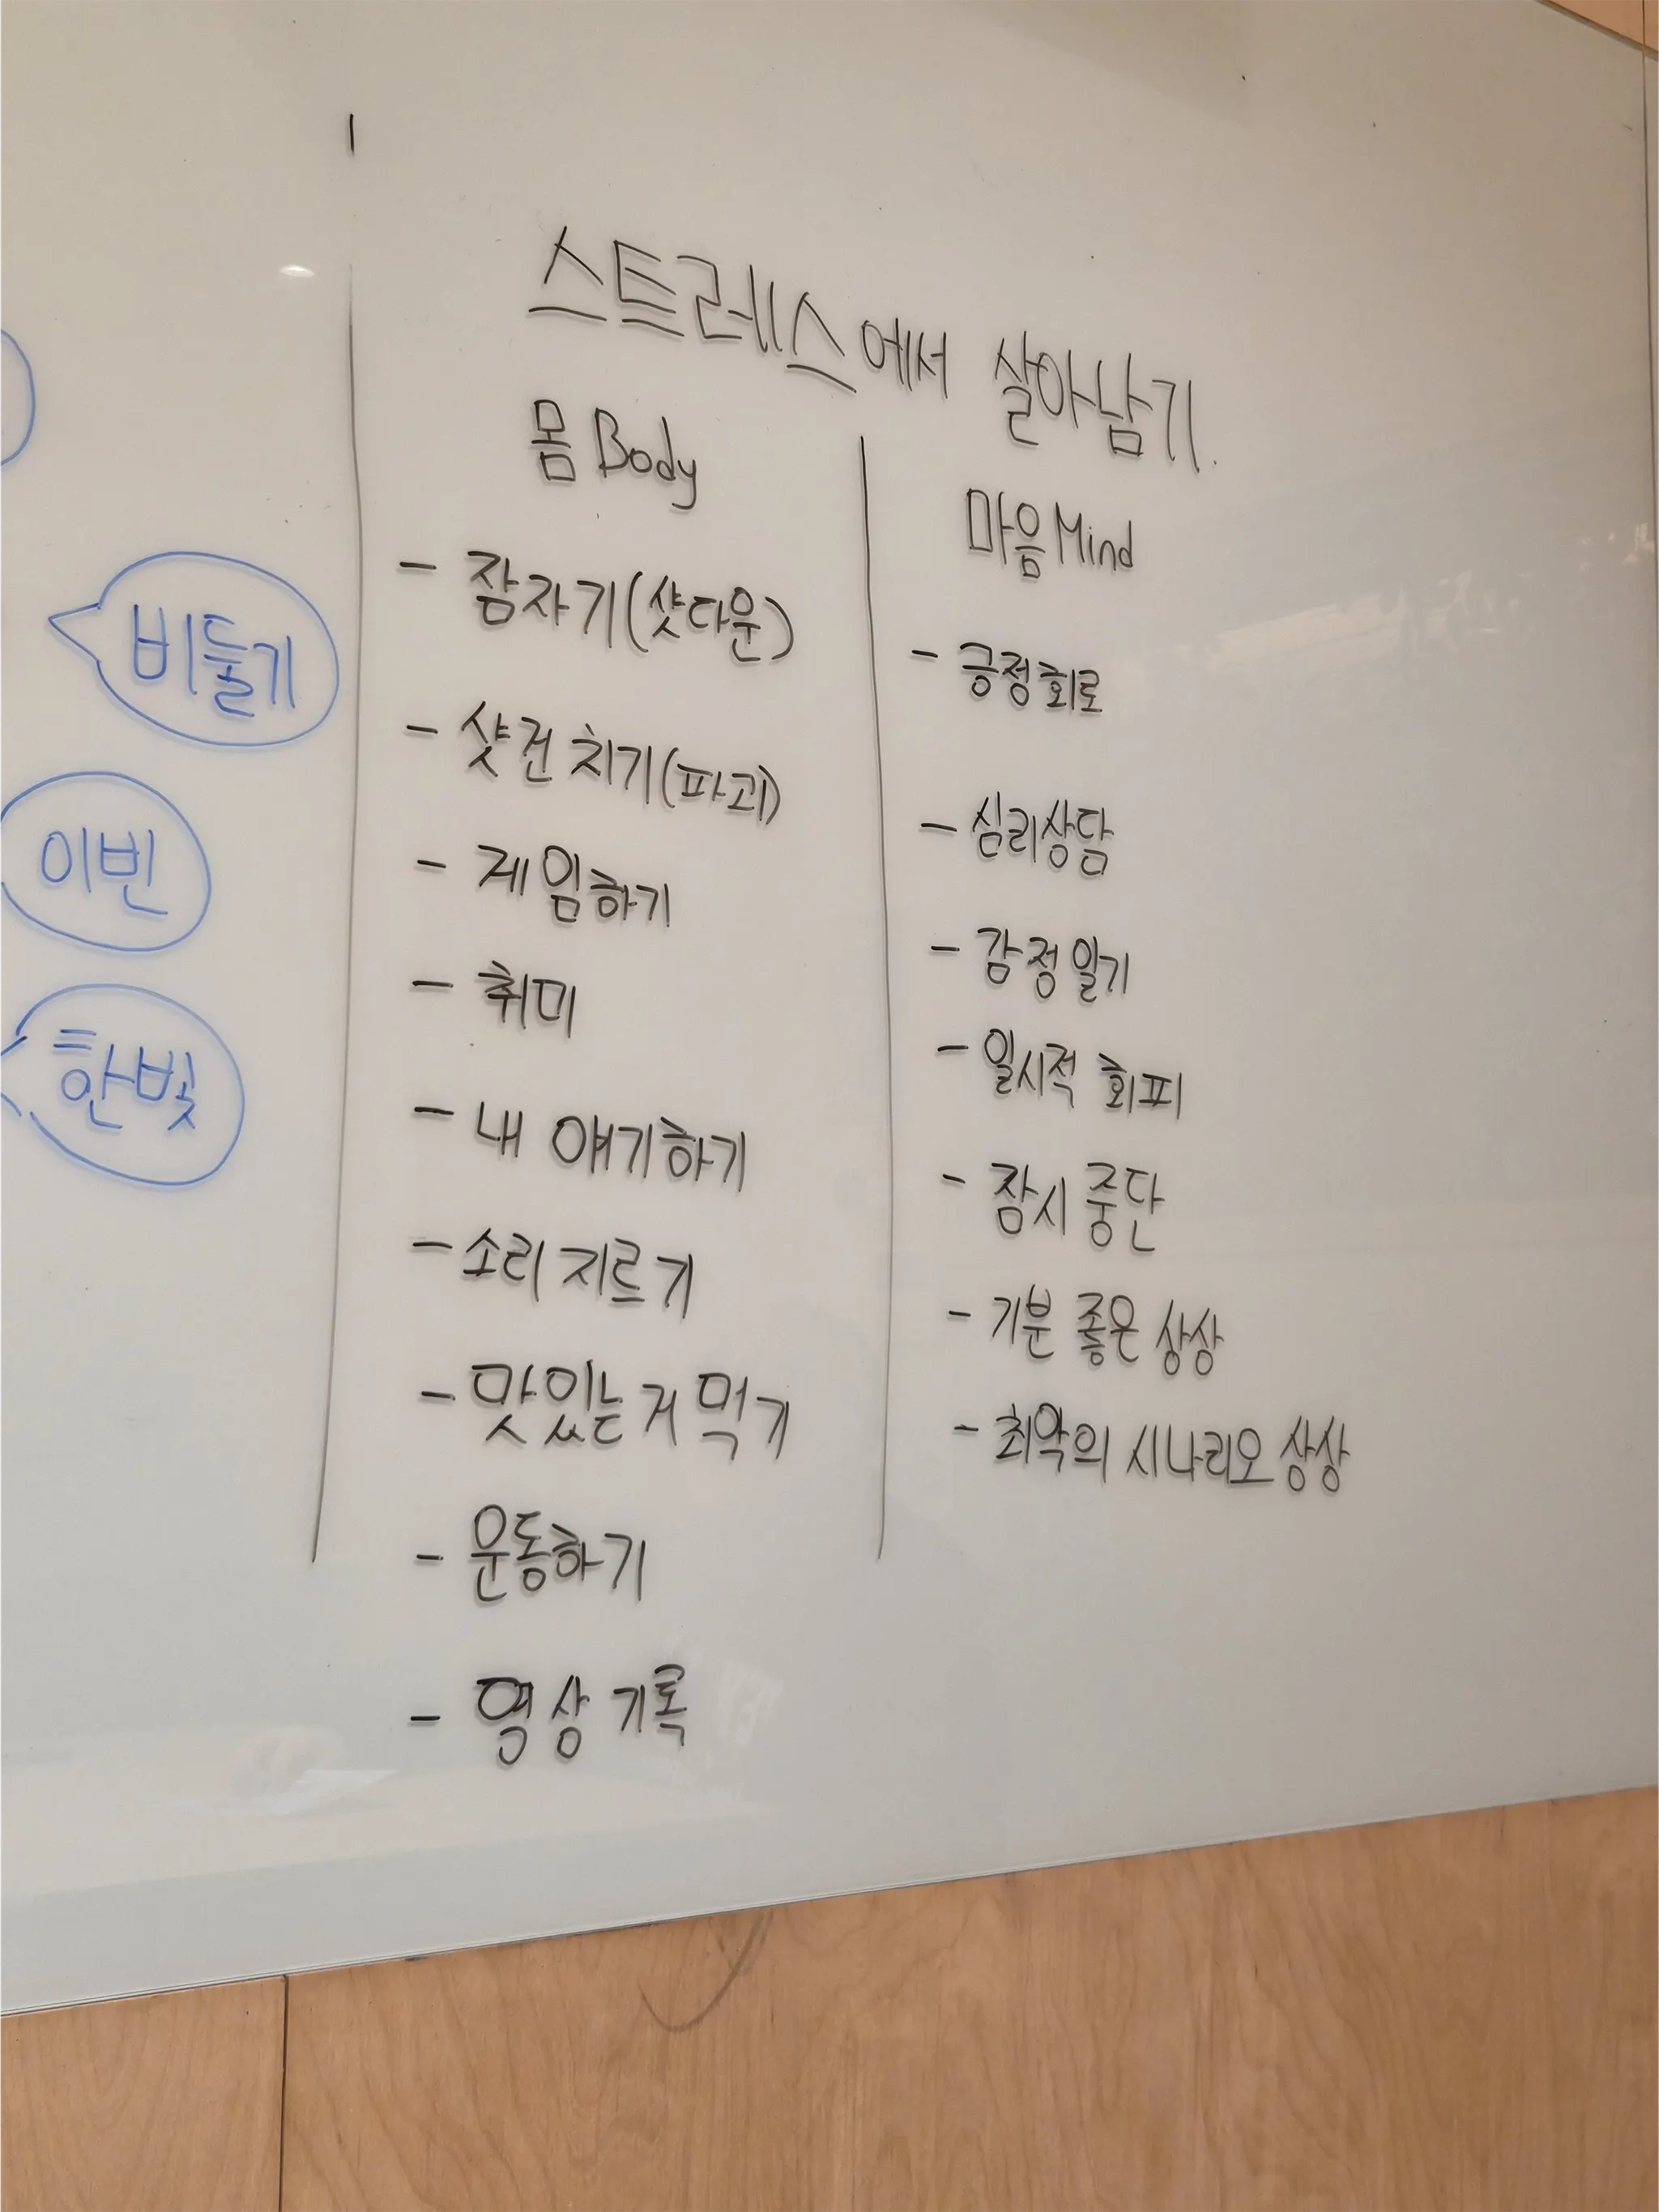 스트레스에서 살아남기.
몸 Body
- 잠자기(샷다운)
- 샷건 치기(파괴)
- 게임하기
- 취미
- 내 얘기하기
- 소리 지르기
- 맛있는 거 먹기
- 운동하기
- 영상 기록
마음 Mind
- 긍정회로
- 심리상담
- 감정일기
- 일시적 회피
- 잠시 중단
- 기분 좋은 상상
- 최악의 시나리오 상상
비둘기
이빈
한빛